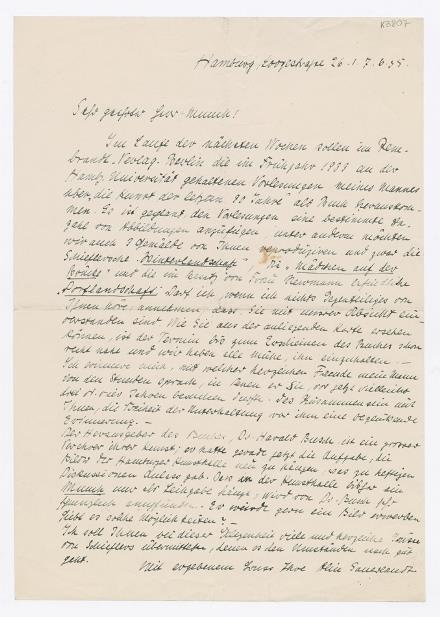 K3807
Hamburg, Loogestraße 26. I. 7.6.35.
Sehr geehrter Herr Munch!
Im Laufe der nächsten Wochen sollen im Rem-
brandt-Verlag, Berlin die im Frühjahr 1933 an der
Hambg. Universität gehaltenen Vorlesungen meines Mannes
über "die Kunst der letzten 30 Jahre" als Buch herauskom-
men. Es ist geplant den Vorlesungen eine bestimmte An-
zahl von Abbildungen anzufügen unter anderen möchten
wir auch 3 Gemälde von Ihnen reproduzieren und zwar die
Schieflersche "Winterlandschaft" Die "Mädchen auf der
Brücke" und die im Besitz von Frau Newmann befindliche
"Dorflandschaft". Darf ich, wenn ich nichts Gegenteiliges von
Ihnen höre, annehmen dass Sie mit unserer Absicht ein-
verstanden sind. Wie Sie aus der anliegenden Karte ersehen
können, ist der Termin bis zum Erscheinen des Buches schon
recht nahe und wir haben alle Mühe, ihn einzuhalten. —
Ich erinnere mich, mit welcher herzlichen Freude mein Mann
von den Stunden sprach, in denen er Sie, vor jetzt vielleicht
drei Jahren besuchen durfte. Das Zusammensein mit
Ihnen, die Freiheit der Unterhaltung war ihm eine beglückende
Erinnerung. —
Der Herausgeber des Buches, Dr. Harald Busch, ist ein grosser
Verehrer Ihrer Kunst; er hatte gerade jetzt die Aufgabe, die
Bilder der Hamburger Kunsthalle neu zu hängen, was zu heftigen
Diskussionen Anlass gab. Dass in der Kunsthalle bisher ein
Munch nur als Leihgabe hängt, wird von Dr. Busch sehr
schmerzlich empfunden. Er würde gern ein Bild erwerben
Gibt es solche Möglichkeiten? —
Ich soll Ihnen bei dieser Gelegenheit viele und herzliche Grüsse
von Schieflers übermitteln, denen es den Umständen nach gut
geht.
Mit ergebenem Gruss Ihre Alice Sauerlandt